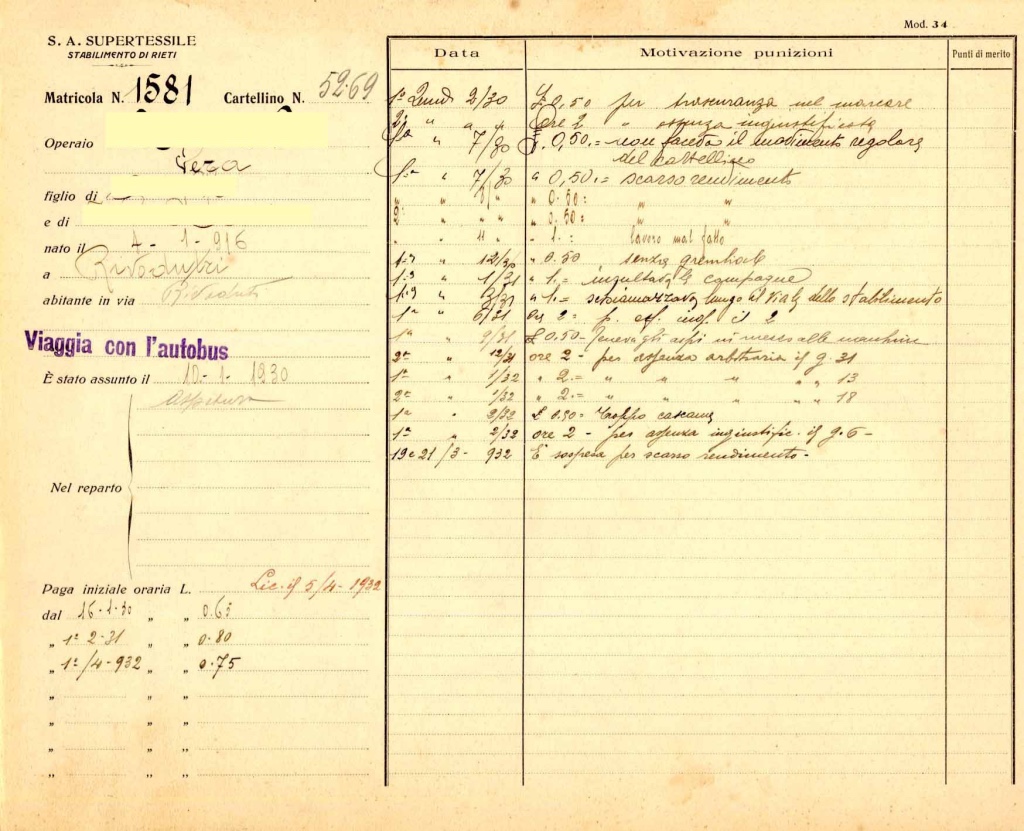 Mod. 34
S. A. SUPERTESSILE
STABILIMENTO DI RIETI
Matricola N. 1581 Cartellino N. 5269
Operaio
figlio di
e di
nato il 4 - 1 - 916
a Rivodutri
abitante in via
Viaggia con l'autobus
È stato assunto il 10 - 1 - 1930
Nel reparto
Paga iniziale oraria L. Lic. il 5/4 - 1932
dal 16-1-30 " " 0.65
" 1° 2-31 " " 0.80
" 1° /4-932 " " 0.75
" " "
" " "
" " "
" " "
Data Motivazione punizioni Punti di merito
1ª Quind 2/30 £ 0,50 per trascuranza nel marcare
2ª " " " ore 2 " assenza ingiustificata
" 7/30 £. 0,50.= non faceva il movimento regolare
del cartellino
1ª " 7/30 " 0,50.= scarso rendimento
" " " 0.50: " "
2ª " " " " 0.50: " "
" " 11 " " 1.: lavoro mal fatto
1ª " 12/30 " 0.50 senza grembiale
1ª " 1/31 " 1.= insultava le compagne
1ª " 3/31 " 1.= schiamazzava lungo il viale dello stabilimento
1ª " 6/31 ore 2= p. ass. ing. il 2
1ª " 9/31 £ 0.50 - Teneva gli aspi in mezzo alle macchine
2ª " 12/31 ore 2 - per assenza arbitraria il g. 31
1ª " 1/32 " 2.= " " " " " 13
2ª " 1/32 " 2.= " " " " " 18
1ª " 2/32 £ 0.50= Troppo cascame
1ª " 2/32 ore 2 - per assenza ingiustific. il g. 6 -
19 e 21 /3 - 932 È sospesa per scarso rendimento -